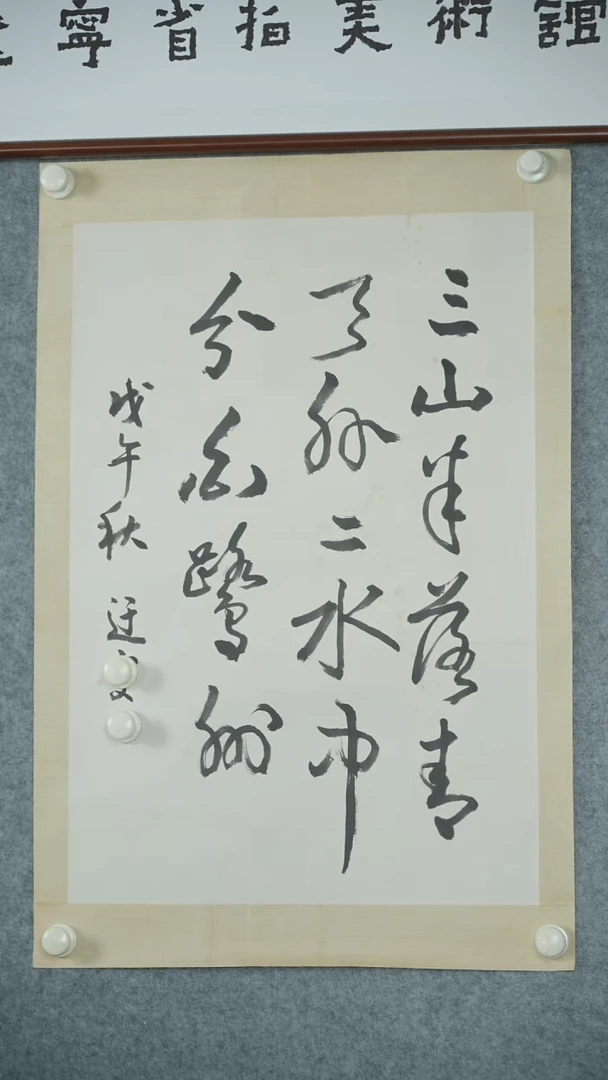 寧省指美術館
三山半落青
天外二水中
分白鷺洲
戊午秋 迂